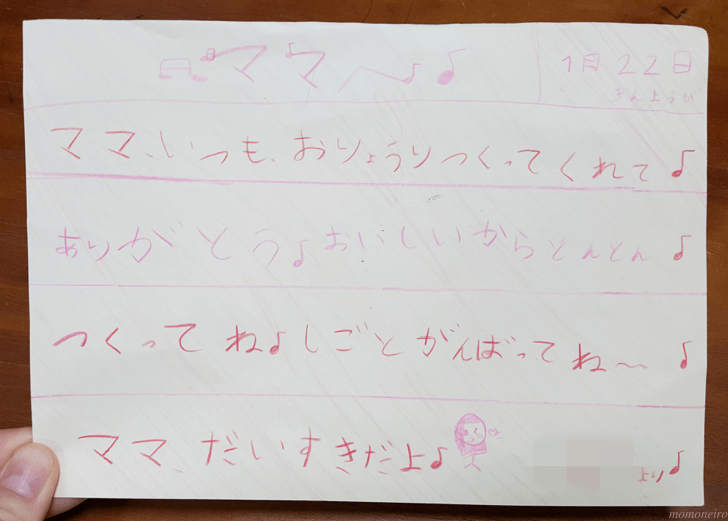 ♫ママへ♪♪
1月22日
きんようび
ママ、いつも、おりょうりつくってくれて♪
ありがとう♪おいしいからとんとん♪
つくってね♪しごとがんばってね〜♪
ママ、だいすきだよ♪
より♪
momoneiro